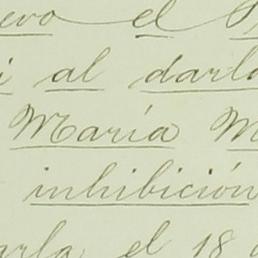 evo el
al darla
María
inhibición
el 18